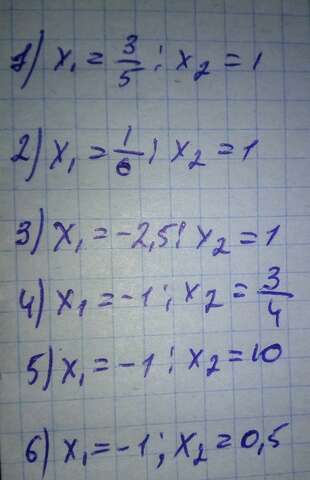 1) x₁ = 3/5 ; x₂ = 1
2) x₁ = 1/6 ; x₂ = 1
3) x₁ = -2,5; x₂ = 1
4) x₁ = -1 ; x₂ = 3/4
5) x₁ = -1 ; x₂ = 10
6) x₁ = -1 ; x₂ = 0,5